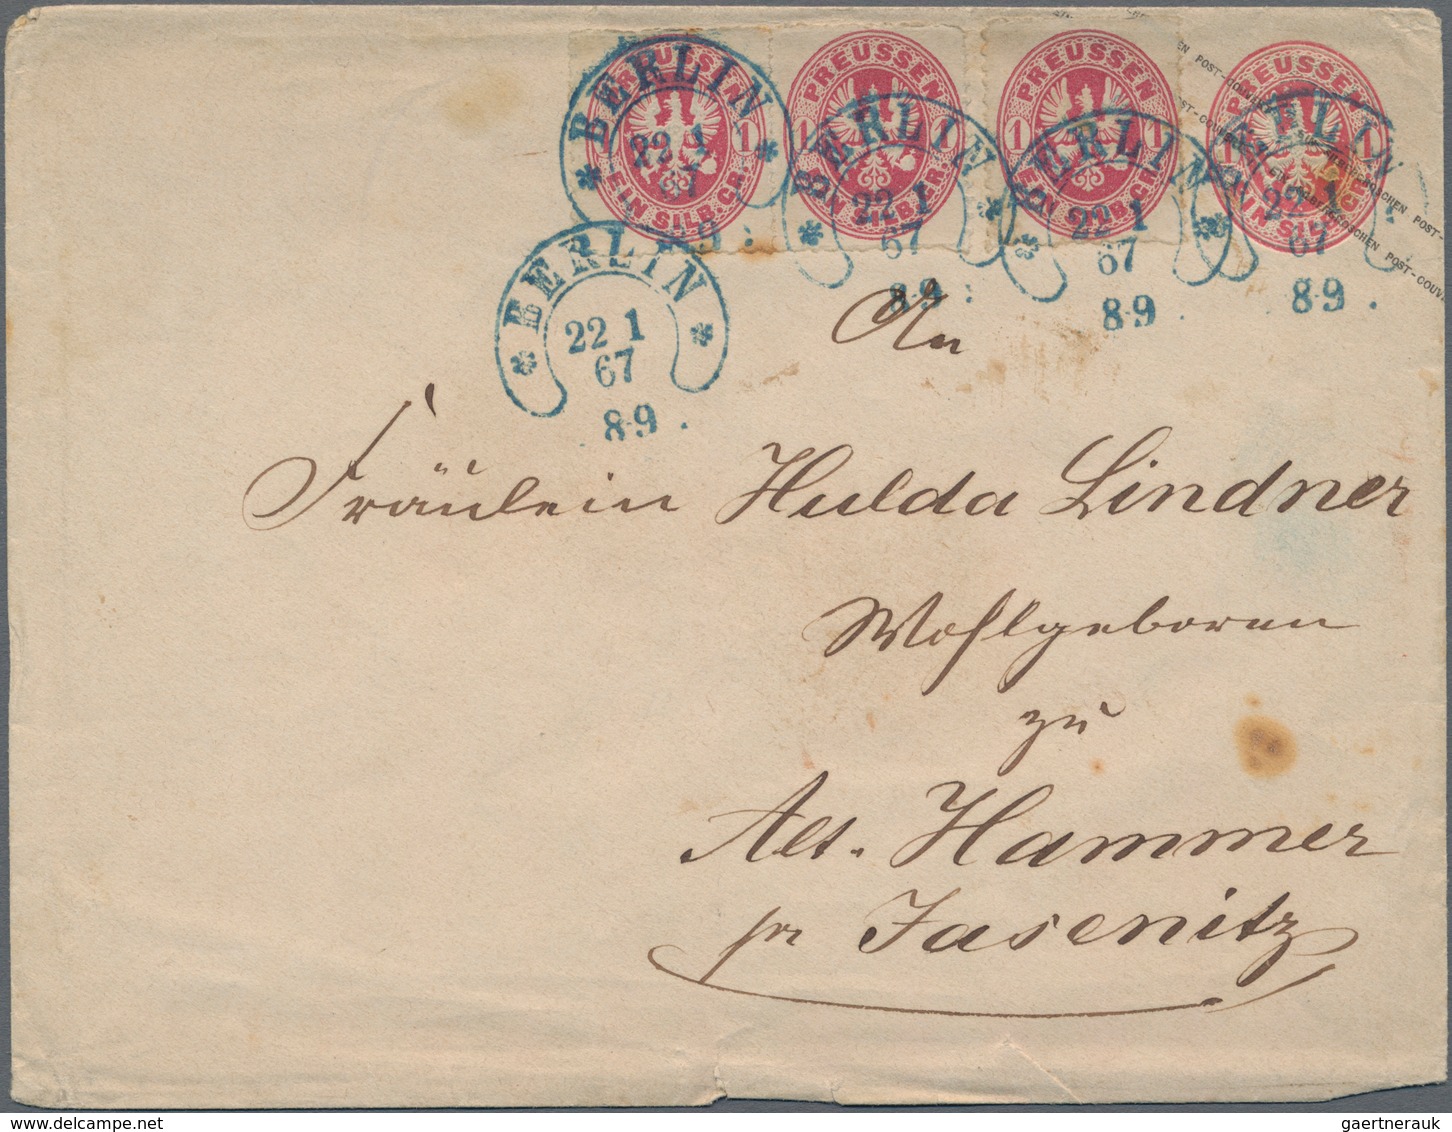 PREUSSEN PREUSSEN PREUSSEN PREUSSEN
1 1 1 1 1 1 1
EIN SILB.GR. EIN SILB.GR. EIN SILB.GR. EIN SILB.
BERLIN BERLIN BERLIN BERLIN
22 1 22 1 22 1 22 1
67 67 67 67
8-9 8-9 8-9
POST-COUVERT
GROSCHEN POST-COUV
BERLIN
22 1
67
8-9
An
Fräulein Hulda Lindner
Wohlgeboren
zu
Alt-Hammer
pr Jasenitz
gaertnerauk